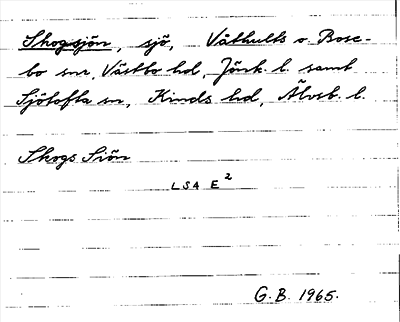 Skogsjön, sjö, Våthults o. Bose-
bo snr, Västbo hd, Jönk. l. samt
Sjötofta sn, Kinds hd, Älvsb. l.
Skogs Siön
LSA E²
G.B. 1965.